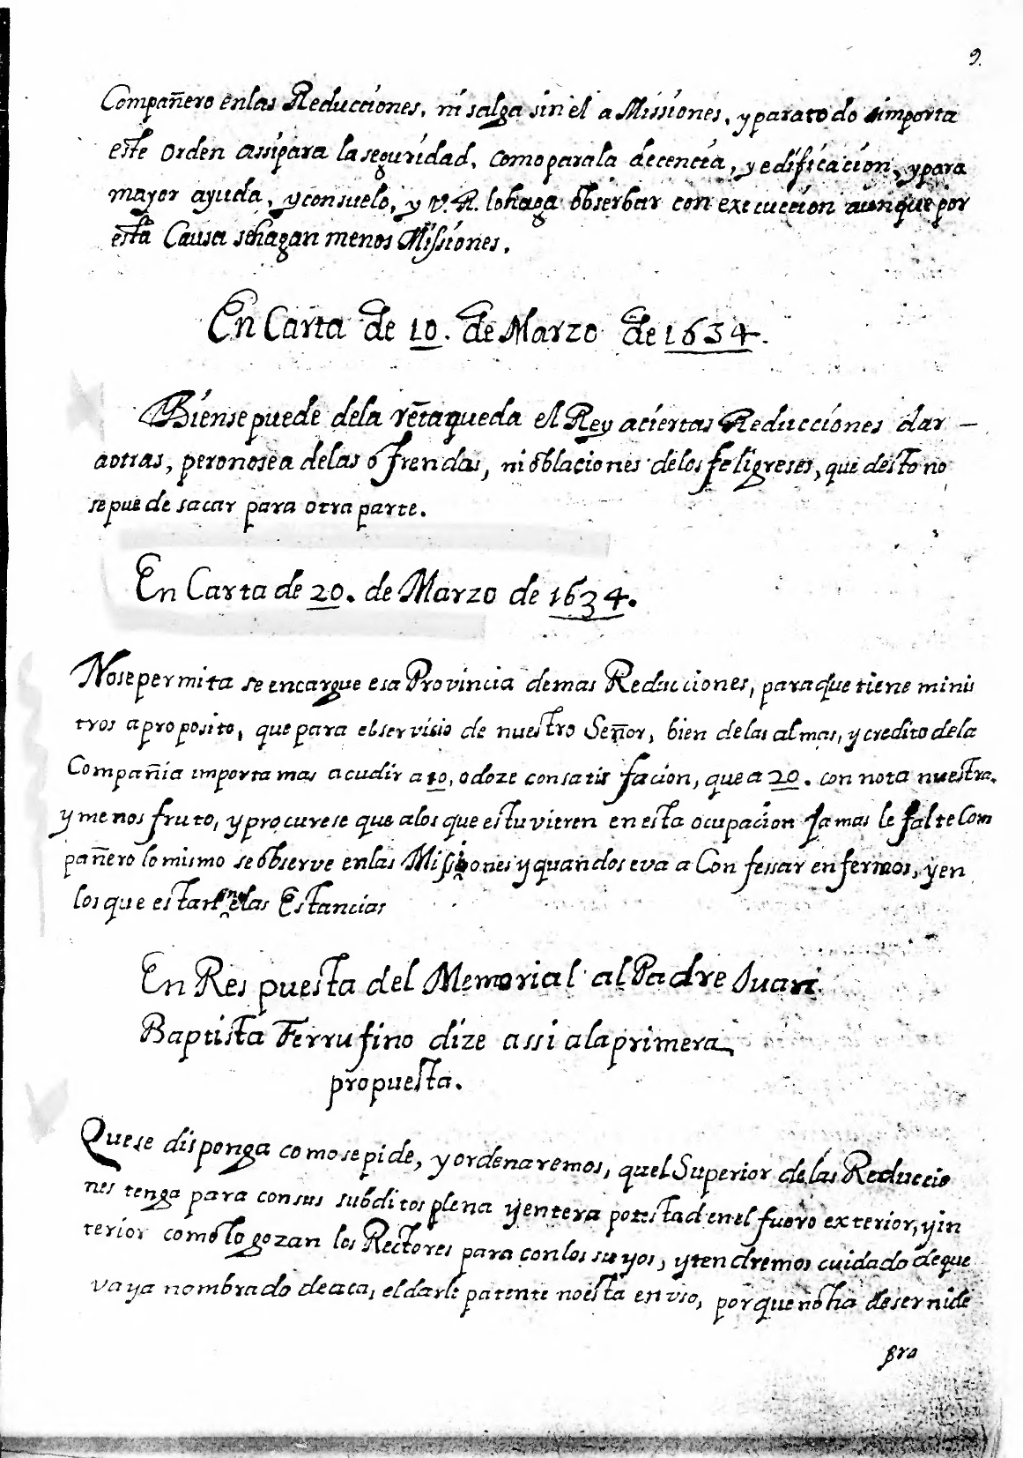 9.
Compañero enlas Reducciones, ni salga sin el a Missiones, y parato do importa
este orden assipara la seguridad, como parala decencia, y edificacion, y para
mayor ayuda, y consuelo, y V.R. lo haga obserbar con execuccion aunque por
esta Causa sehagan menos Missiones.
En Carta de 10. de Marzo de 1634.
Biensepuede dela rẽtaqueda el Rey aciertas Reducciones dar
aotras, peronosea delas ofrendas, ni oblaciones delos feligreses, que desto no
sepuede sacar para otra parte.
En Carta de 20. de Marzo de 1634.
Nosepermita se encargue esa Provincia demas Reducciones, paraque tiene minis
tros aproposito, que para elservisio de nuestro Señor, bien delas almas, y credito dela
Compañia importa mas acudir a 10, o doze consatis facion, que a 20. con nota nuestra.
y menos fruto, y procurese que alos que estuvieren en esta ocupacion Jamas le falte Com
pañero lo mismo se observe enlas Missiones y quando seva a Confessar enfermos, y en
los que estan en las Estancias
En Respuesta del Memorial al Padre Juan
Baptista Ferrufino dize assi alaprimera
propuesta.
Quese disponga como sepide, y ordenaremos, quel Superior delas Reduccio
nes tenga para consus subditos plena y entera potestad enel fuero exterior, y in
terior como lo gozan los Rectores para conlos suyos, y tendremos cuidado deque
vaya nombrado deaca, eldarle patente noesta en vso, porque no ha deser nide
gra